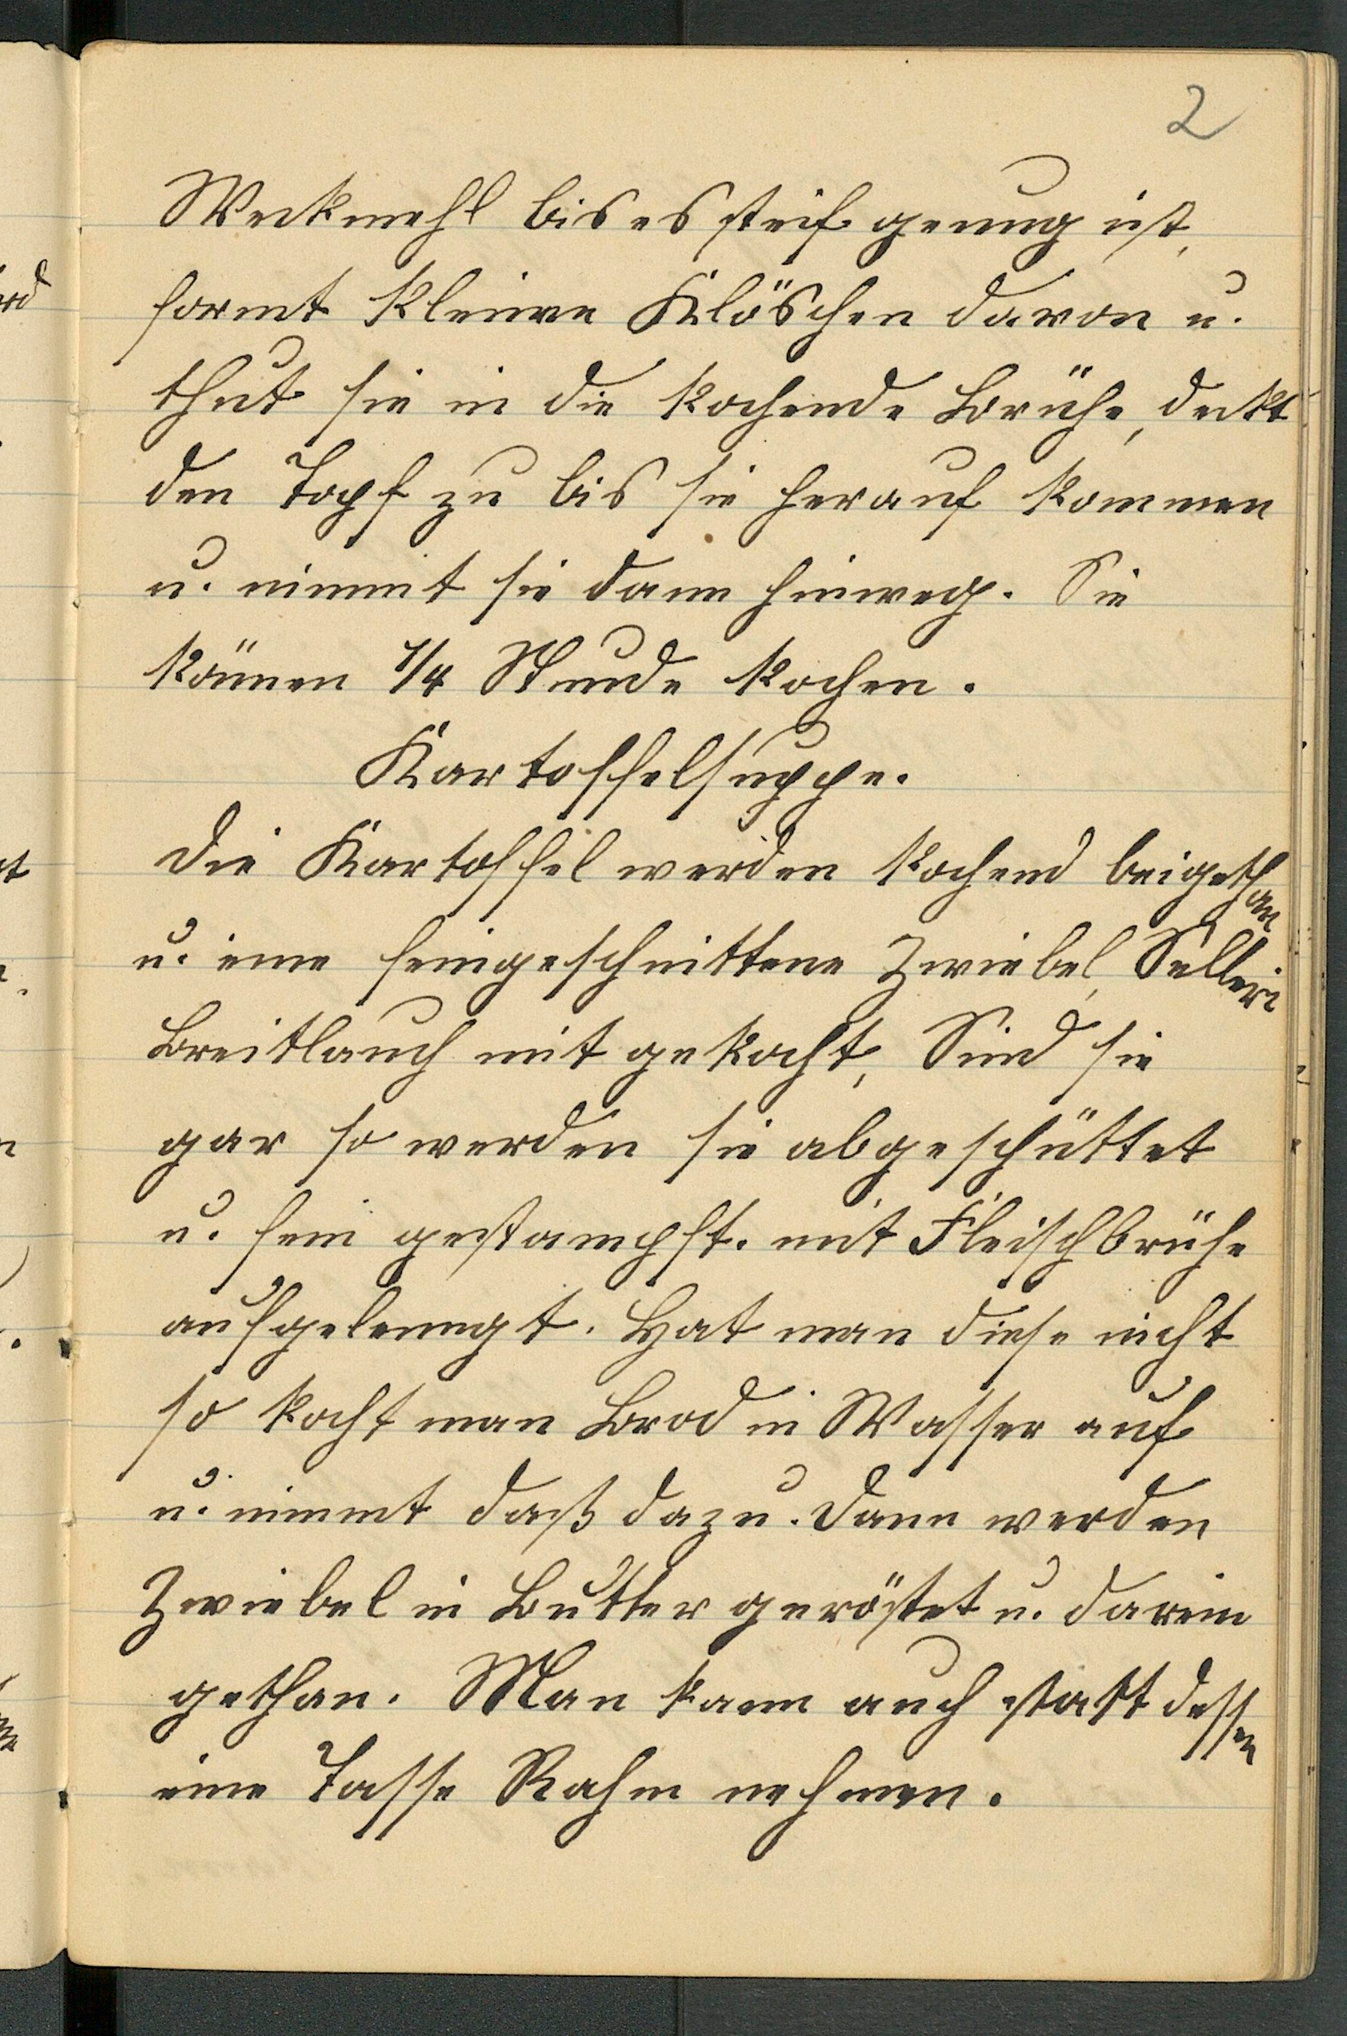 2
Weckmehl bis es steif genug ist,
formt kleine Klöschen davon u.
thut sie in die kochende Brühe, deckt
den Topf zu bis sie herauf kommen
u. nimmt sie dann hinweg. Sie
können 1/4 Stunde kochen.
Kartoffelsuppe.
Die Kartoffel werden kochend beigethan
u. eine feingeschnittene Zwiebel, Selleri
Breitlauch mit gekocht, Sind sie
gar so werden sie abgeschüttet
u. fein gestampft. mit Fleischbrühe
aufgelenngt. Hat man diese nicht
so kocht man Brod in Wasser auf
u. nimmt daß dazu. Dann werden
Zwiebel in Butter geröstet u. darein
gethan. Man kann auch statt dessen
eine Tasse Rahm nehmen.